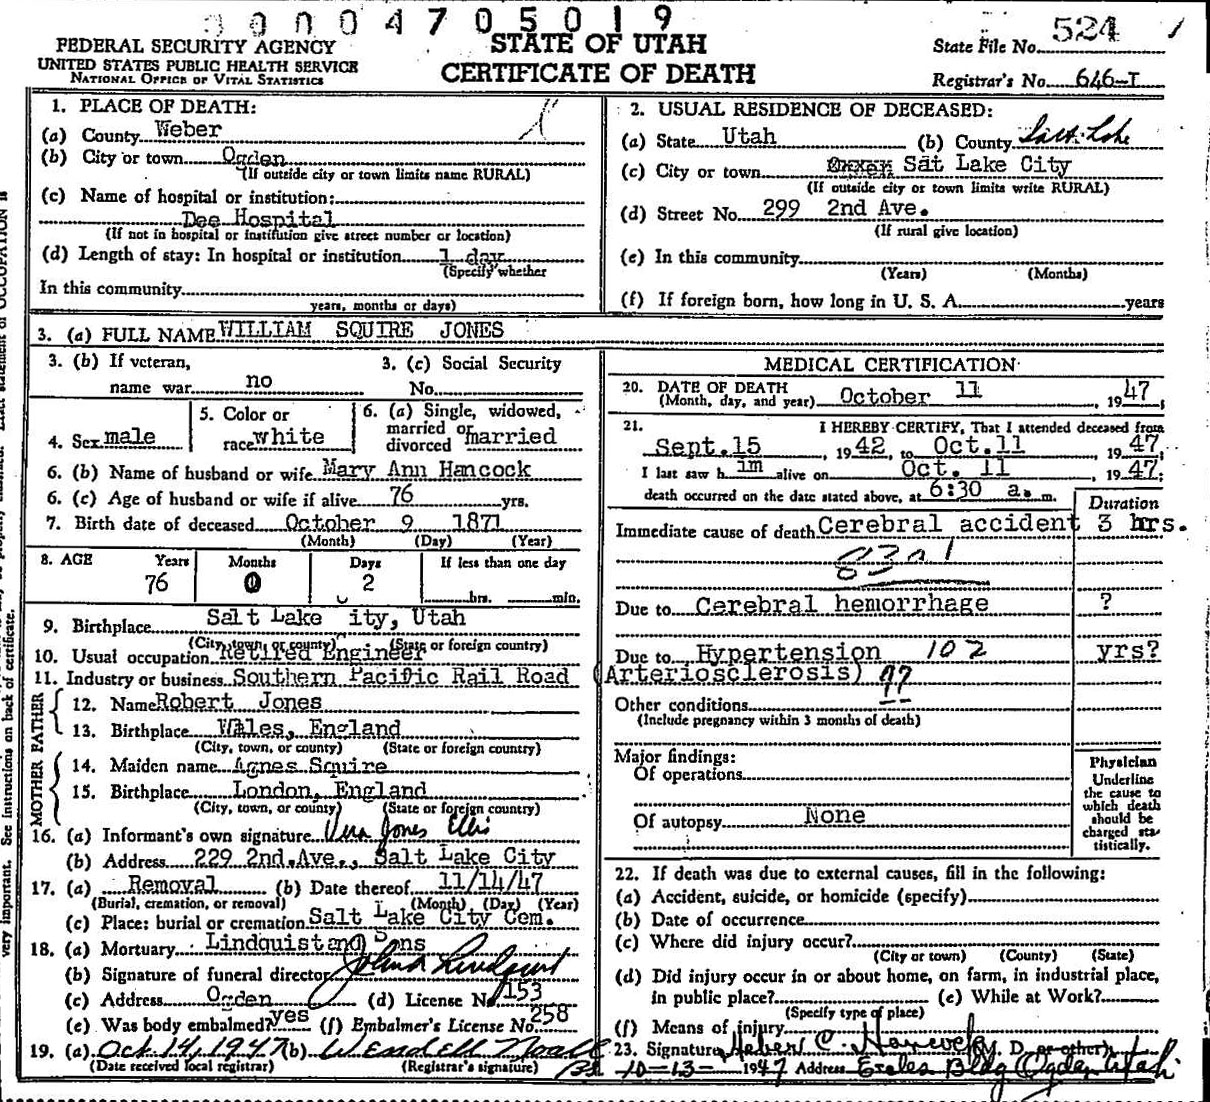 0000470501 9
FEDERAL SECURITY AGENCY
UNITED STATES PUBLIC HEALTH SERVICE
NATIONAL OFFICE OF VITAL STATISTICS
STATE OF UTAH
CERTIFICATE OF DEATH
State File No. 524
Registrar's No. 646-I
1. PLACE OF DEATH:
(a) County Weber
(b) City or town Ogden
(If outside city or town limits name RURAL)
(c) Name of hospital or institution:
Dee Hospital
(If not in hospital or institution give street number or location)
(d) Length of stay: In hospital or institution 1 day
(Specify whether
In this community
years, months or days)
2. USUAL RESIDENCE OF DECEASED:
(a) State Utah (b) County Salt Lake
(c) City or town Sat Lake City
(If outside city or town limits write RURAL)
(d) Street No. 299 2nd Ave.
(If rural give location)
(e) In this community
(Years) (Months)
(f) If foreign born, how long in U. S. A. years
3. (a) FULL NAME WILLIAM SQUIRE JONES
3. (b) If veteran, 3. (c) Social Security
name war no No.
4. Sex male
5. Color or
race white
6. (a) Single, widowed,
married or
divorced married
6. (b) Name of husband or wife Mary Ann Hancock
6. (c) Age of husband or wife if alive 76 yrs.
7. Birth date of deceased October 9 1871
(Month) (Day) (Year)
8. AGE Years Months Days If less than one day
76 0 2 hrs. min.
9. Birthplace Salt Lake ity, Utah
(City, town, or county) (State or foreign country)
10. Usual occupation Retired Engineer
11. Industry or business Southern Pacific Rail Road
FATHER
12. Name Robert Jones
13. Birthplace Wales, England
(City, town, or county) (State or foreign country)
MOTHER
14. Maiden name Agnes Squire
15. Birthplace London, England
(City, town, or county) (State or foreign country)
16. (a) Informant's own signature Vera Jones Ellis
(b) Address 229 2nd.Ave., Salt Lake City
17. (a) Removal (b) Date thereof 11/14/47
(Burial, cremation, or removal) (Month) (Day) (Year)
(c) Place: burial or cremation Salt Lake City Cem.
18. (a) Mortuary Lindquist and Sons
(b) Signature of funeral director John A Lindquist
(c) Address Ogden (d) License No. 153
(e) Was body embalmed? yes (f) Embalmer's License No. 258
19. (a) Oct 14, 1947 (b) Wendell Noall
(Date received local registrar) (Registrar's signature)
MEDICAL CERTIFICATION
20. DATE OF DEATH
(Month, day, and year) October 11, 1947
21. I HEREBY CERTIFY, That I attended deceased from
Sept.15, 1942, to Oct.11 1947,
I last saw h im alive on Oct. 11, 1947;
death occurred on the date stated above, at 6:30 a. m.
Duration
Immediate cause of death Cerebral accident 3 hrs.
Due to Cerebral hemorrhage ?
Due to Hypertension 102 yrs?
(Arteriosclerosis) 97
Other conditions
(Include pregnancy within 3 months of death)
Major findings:
Of operations
Of autopsy None
Physician
Underline
the cause to
which death
should be
charged sta-
tistically.
22. If death was due to external causes, fill in the following:
(a) Accident, suicide, or homicide (specify)
(b) Date of occurrence
(c) Where did injury occur?
(City or town) (County) (State)
(d) Did injury occur in or about home, on farm, in industrial place,
in public place? (e) While at Work?
(Specify type of place)
(f) Means of injury
23. Signature Heber C. (M. D. or other)
10-13- 1947 Address Eccles Bldg Ogden Utah
very important. See instructions on back of certificate.